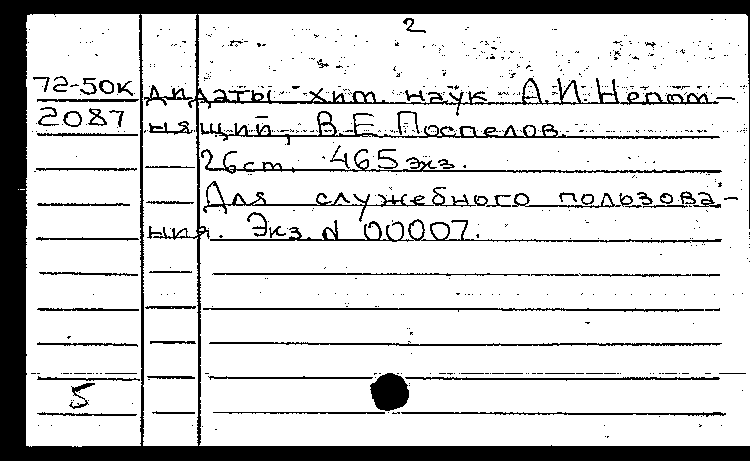 2
72-50К дидаты хим. наук А.И.Непом-
2087 нящий, В.Е.Поспелов.
26 ст. 465 экз.
Для служебного пользова-
ния. Экз. N 00007.
5